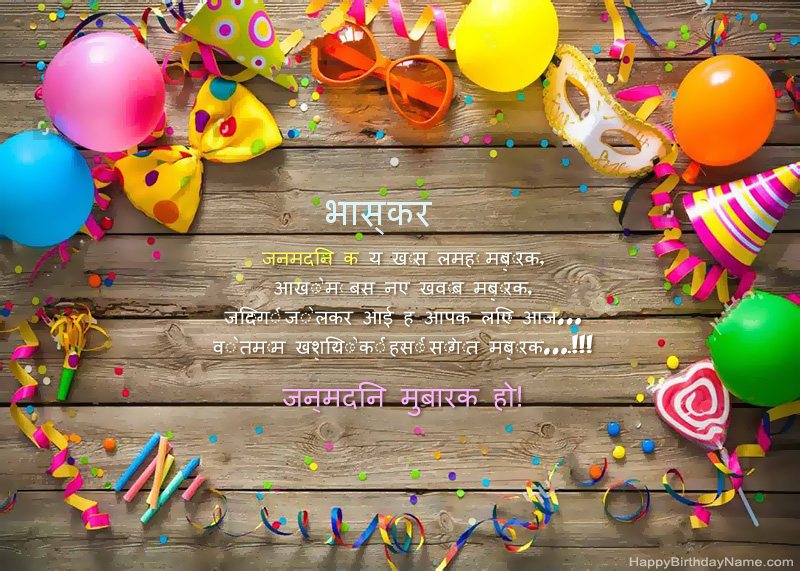 भास्कर
जनमदिन क य खास लमह मबारक,
आखों में बस नए खवाब मबारक,
जिदगी जो लेकर आई ह आपक लिए आज...
वो तमाम खशियों की हसीं सौगात मबारक...!!!
जन्मदिन मुबारक हो!
HappyBirthdayName.com